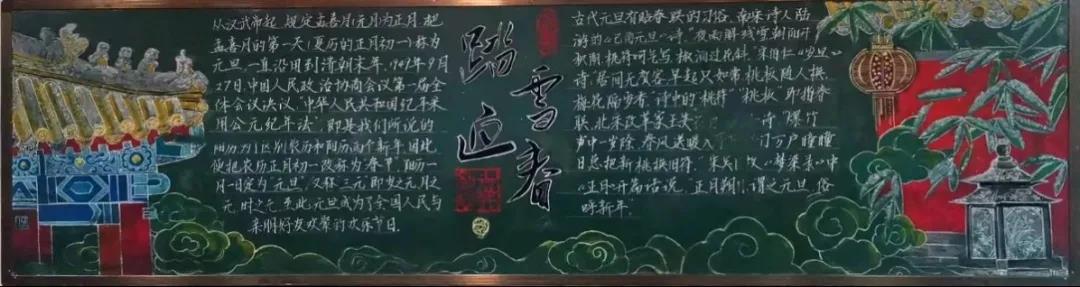 从汉武帝起,规定孟喜月(元月)为正月,把
孟喜月的第一天(夏历的正月初一)称为
元旦,一直沿用到清朝末年。1949年9月
27日,中国人民政治协商会议第一届全
体会议决议:"中华人民共和国纪年采
用公元纪年法",即是我们所说的
阳历,为了区别农历和阳历两个新年,因此,
便把农历正月初一改称为"春节",阳历一
月一日定为"元旦",又称三元,即岁之元、月之
元、时之元,至此,元旦成为了全国人民与
亲朋好友欢聚的欢乐节日。
踏雪
迎春
古代元旦有贴春联的习俗,南宋诗人陆
游的《己酉元旦》诗:"夜雨解残雪,朝阳开
积阴,桃符呵笔写,椒酒过花斜。"宋伯仁《岁旦》
诗:"居间无贺客,早起只如常,桃板随人换,
梅花隔岁香。"诗中的"桃符""桃板"即指春
联,北宋改革家王安 诗"爆竹
声中一岁除,春风送暖入 万户瞳瞳
日,总把新桃换旧符。"宋 《梦粱录》中
《正月》开篇话说:"正月朔日,谓之元旦,俗
呼新年"